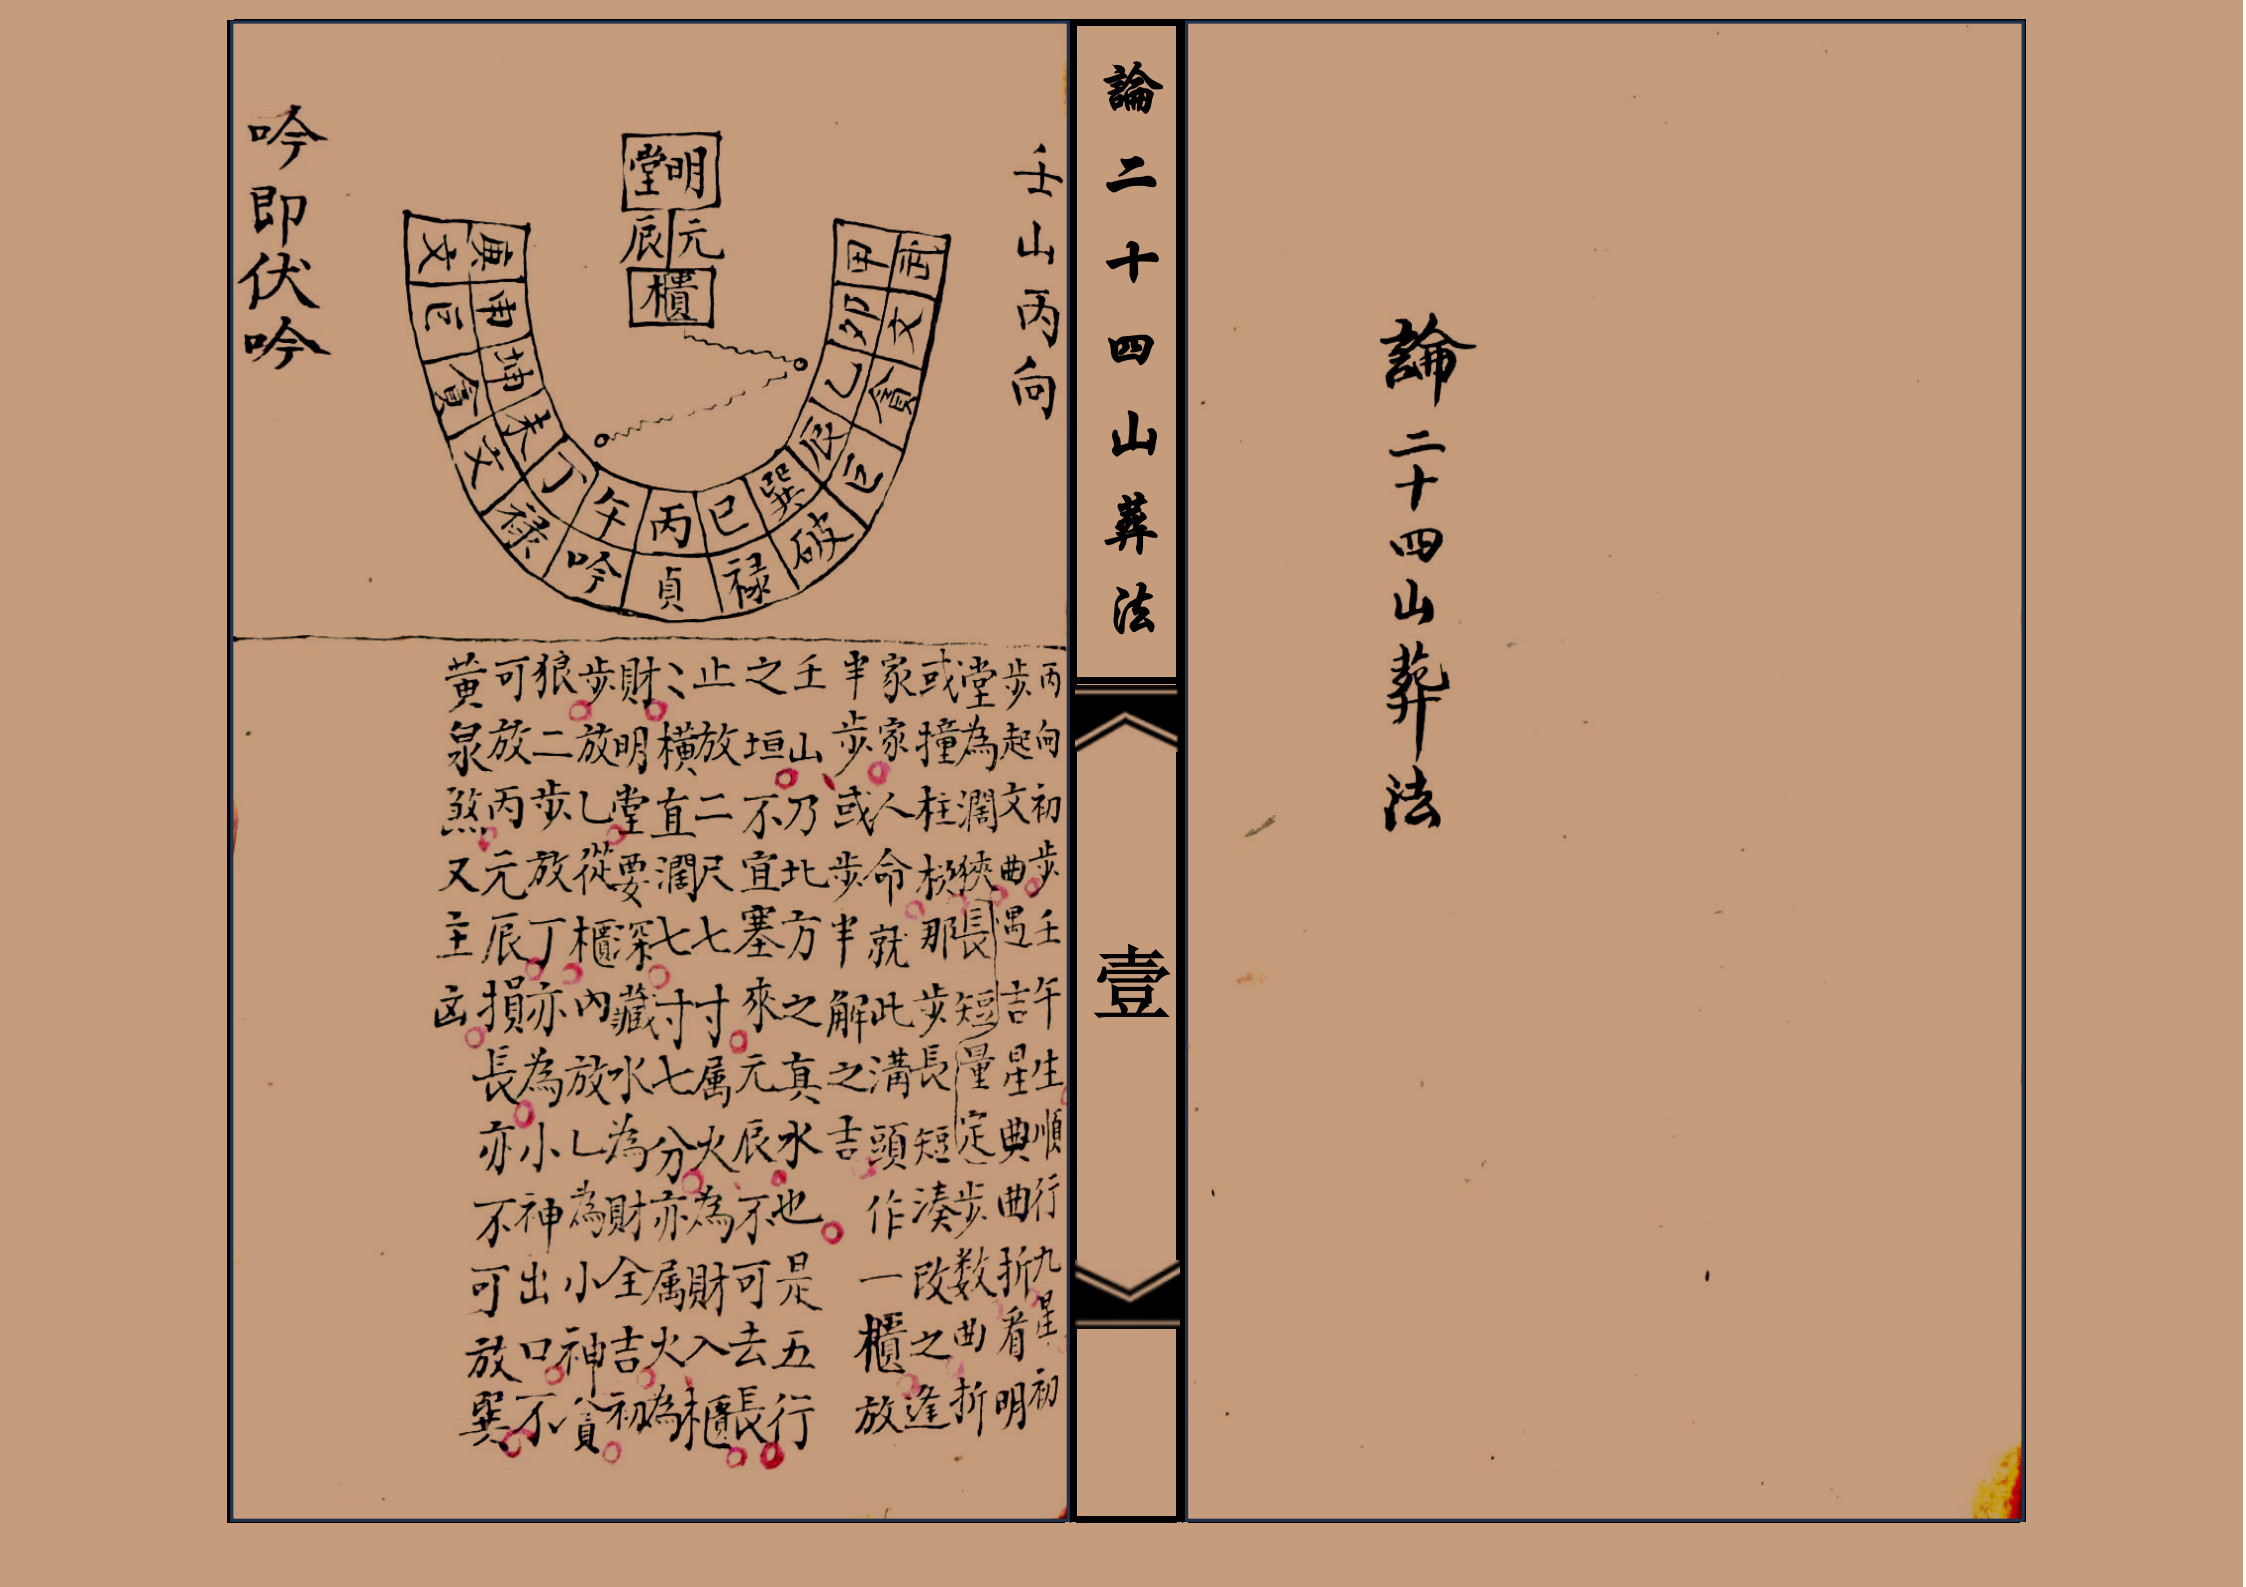 論二十四山葬法
論二十四山葬法
壹
壬山丙向
明堂
元辰
櫃
甲 卯 乙 辰 巽 巳 丙 午 丁 未 坤 申 庚
文 貪 巨 破 禄 貞 吟 禄 文 貪 巨 文
吟即伏吟
丙向初步壬午生順行九星初
步起文曲遇吉星典曲折看明
堂為濶狹長短量定步数曲折
或撞柱杉那步長短湊改之逢
家家人命就此溝頭作一櫃放
半步或步半解之吉
壬山乃北方之真水也是五行
之垣不宜塞來元辰不可去長
止放二尺七寸属火為財入櫃
〻橫直濶七寸七分亦属火為
財明堂要深藏水為財全吉初
步放乚從櫃內放乚為小神貪
狼二步放丁亦為小神出口不
可放丙元辰損長亦不可放巽
黄泉煞又主凶